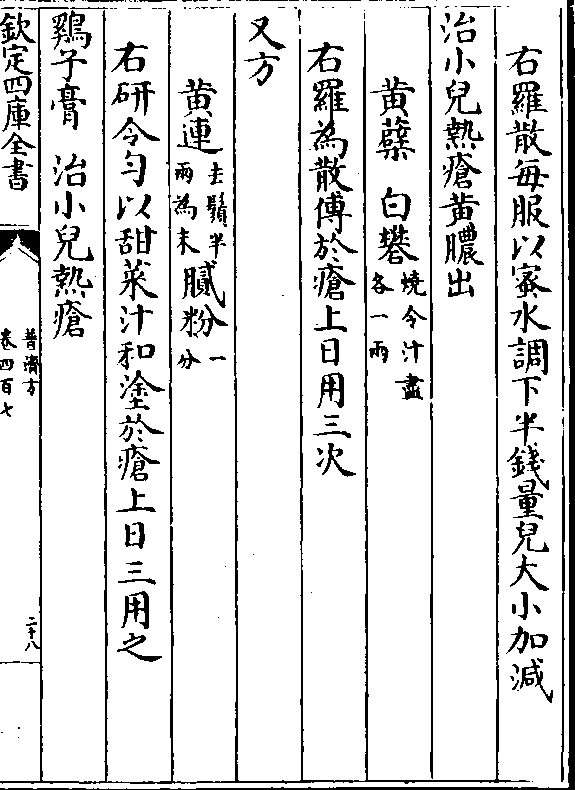 右羅散毎服以蜜水調下半錢量兒大小加減
治小兒熱瘡黄膿出
黄蘗　白礬燒令汁盡各一兩
右羅為散傅於瘡上日用三次
又方
黄連去鬚半兩為末膩粉一分
右研令匀以甜菜汁和塗於瘡上日三用之
鷄子膏　治小兒熱瘡
欽定四庫全書
普濟方
卷四百七
二十八